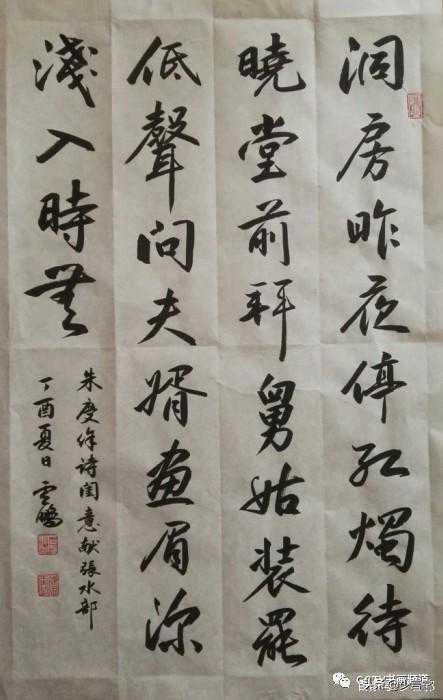 洞房昨夜停紅燭待
曉堂前拜舅姑裝罷
低聲問夫婿畫眉深
淺入時無
朱慶徐詩閨意献張水部
丁酉夏日雲鵬